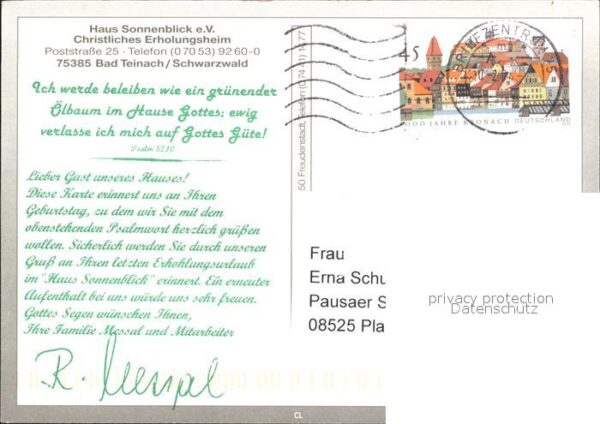 Haus Sonnenblick e.V.
Christliches Erholungsheim
Poststraße 25 · Telefon (0 70 53) 92 60-0
75385 Bad Teinach/Schwarzwald
Ich werde beleiben wie ein grünender
Ölbaum im Hause Gottes; ewig
verlasse ich mich auf Gottes Güte!
Psalm 52,10
Lieber Gast unseres Hauses!
Diese Karte erinnert uns an Ihren
Geburtstag, zu dem wir Sie mit dem
obenstehenden Psalmwort herzlich grüßen
wollen. Sicherlich werden Sie durch unseren
Gruß an Ihren letzten Erhohlungsurlaub
im "Haus Sonnenblick" erinnert. Ein erneuter
Aufenthalt bei uns würde uns sehr freuen.
Gottes Segen wünschen Ihnen,
Ihre Familie Messal und Mitarbeiter
R. Messal
50 Freudenstadt, Telefon (0 74 41)
45
BRIEFZENTRUM
1000 JAHRE KRONACH DEUTSCHLAND
Frau
Erna Schu
Pausaer S
08525 Pla
privacy protection
Datenschutz
CL